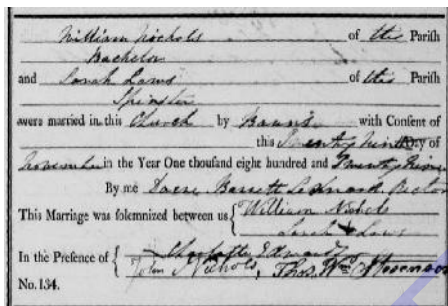 William Nichols of this Parish
Bachelor
and Sarah Laws of this Parish
Spinster
were married in this Church by Banns with Consent of
this Twenty Ninth Day of
November in the Year One thousand eight hundred and Twenty Nine
By me Dacre Barrett Lennard Rector
This Marriage was solemnized between us { William Nichols
Sarah Laws
In the Presence of { Charlotte Edwards
John Nichols, Thos. Wm. Stevenson
No. 134.